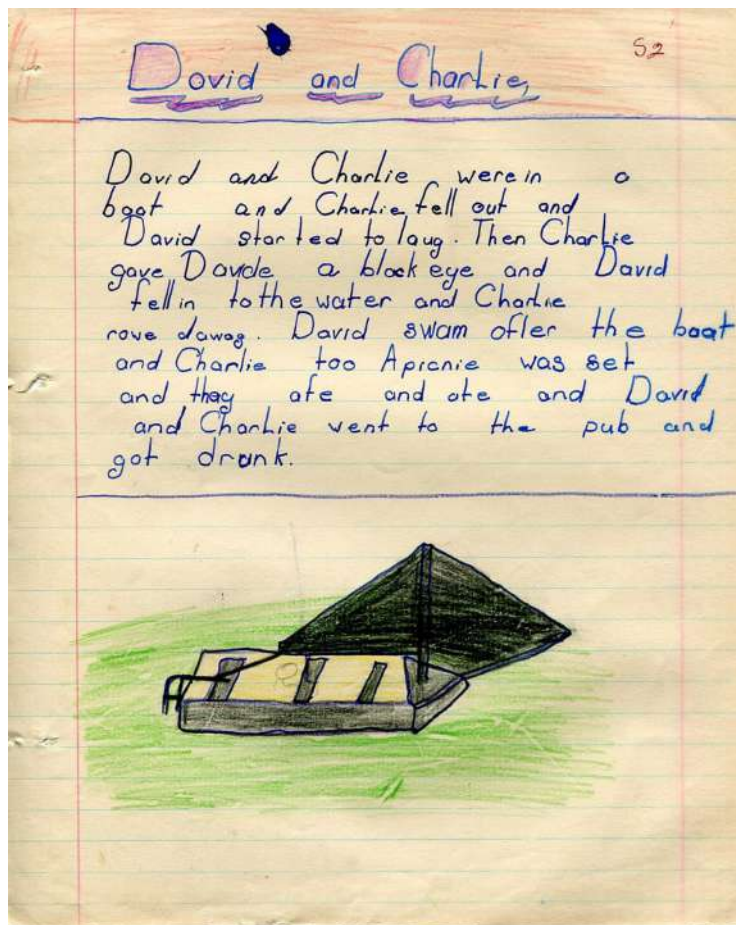 52
David and Charlie,
David and Charlie were in a
boat and Charlie fell out and
David started to laug. Then Charlie
gave Davide a black eye and David
fell in to the water and Charlie
rove daway. David swam after the boat
and Charlie too A picnie was set
and they ate and ate and David
and Charlie went to the pub and
got drunk.